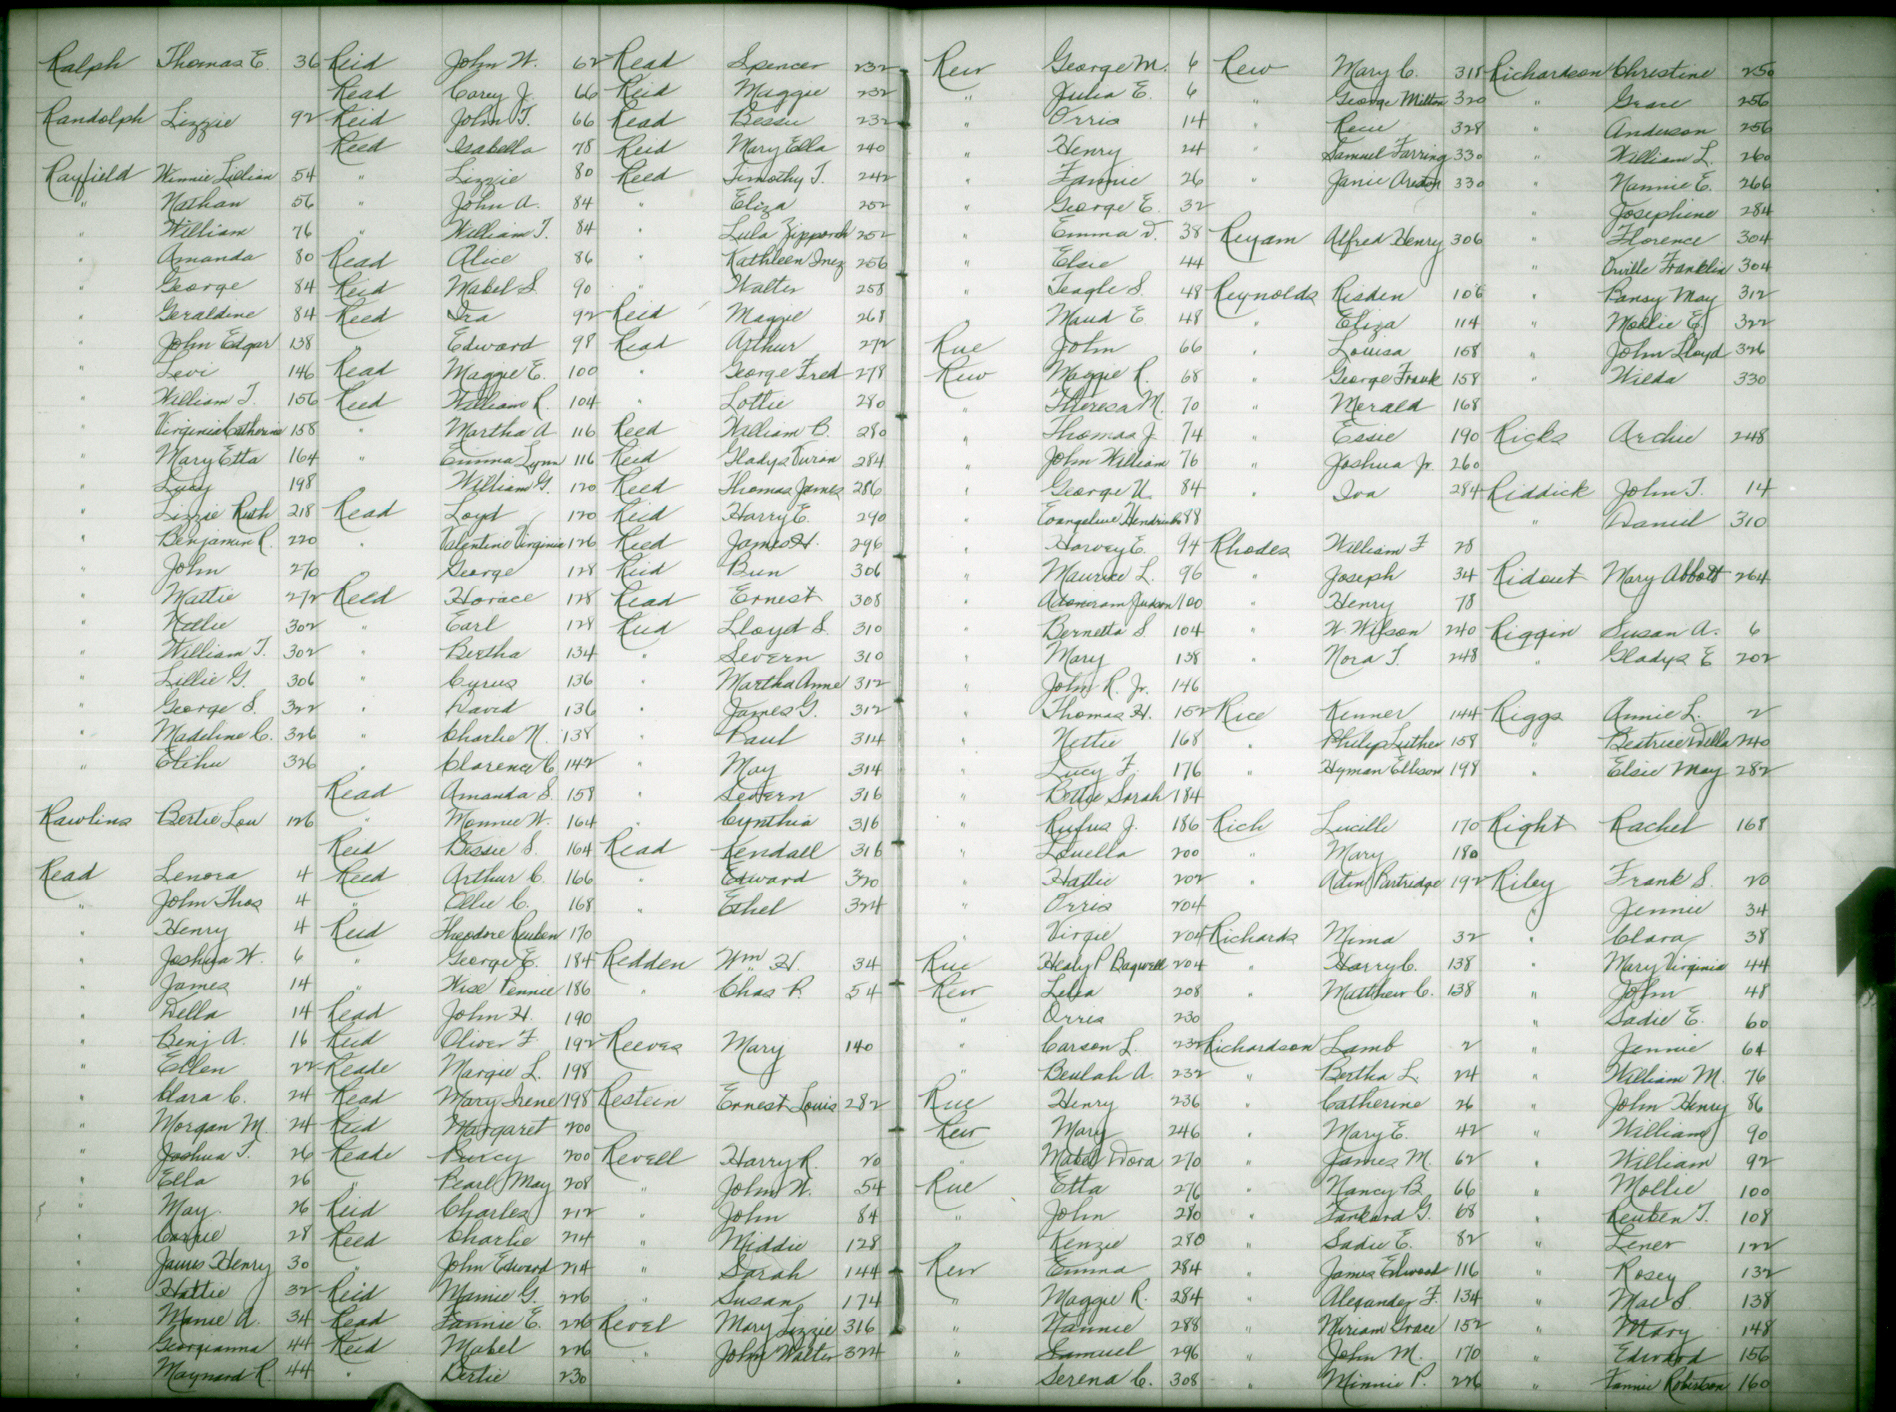 Ralph Thomas E. 36
Randolph Lizzie 92
Rayfield Winnie Lillian 54
" Nathan 56
" William 76
" Amanda 80
" George 84
" Geraldine 84
" John Edgar 138
" Levi 146
" William T. 156
" Virginia Catherine 158
" Mary Etta 164
" Lucy 198
" Lizzie Ruth 218
" Benjamin R. 220
" John 270
" Mattie 272
" Nellie 302
" William T. 302
" Lillie G. 306
" George S. 322
" Madeline C. 326
" Elihu 326
Rawlins Bertie Lou 126
Read Lenora 4
" John Thos 4
" Henry 4
" Joshua W. 6
" James 14
" Della 14
" Benj A. 16
" Ellen 22
" Clara C. 24
" Morgan M. 24
" Joshua T. 26
" Ella 26
" May 26
" Carrie 28
" James Henry 30
" Hattie 32
" Mamie A. 34
" Georgianna 44
" Maynard R. 44
Reid John W. 62
Read Carey J. 66
Reid John T. 66
Reed Isabella 78
" Lizzie 80
" John A. 84
" William T. 84
Read Alice 86
Reid Mabel S. 90
Reed Ira 92
" Edward 98
Read Maggie E. 100
Reed William R. 104
" Martha A 116
" Emma Lynn 116
" William G. 120
Read Loyd 120
" Valentine Virginia 126
" George 128
Reed Horace 128
" Earl 128
" Bertha 134
" Cyrus 136
" David 136
" Charlie N. 138
" Clarence C 142
Read Amanda S. 158
" Monnie W. 164
Reid Bessie S. 164
Reed Arthur C. 166
" Ellie C. 168
Reid Theodore Reuben 170
" George E. 184
" Wise Pennie 186
Read John H. 190
Reid Oliver F. 192
Reade Margie L. 198
Read Mary Irene 198
Reid Margaret 200
Reade Percy 200
" Pearl May 208
Reid Charles 212
Reed Charlie 214
" John Edward 214
Reid Mamie G. 226
Read Fannie E. 226
Reid Mabel 226
" Bertie 230
Read Spencer 232
Reid Maggie 232
Read Bessie 232
Reid Mary Ella 240
Reed Timothy T. 242
" Eliza 252
" Lula Zipporah 252
" Kathleen Inez 256
" Walter 258
Reid Maggie 268
Read Arthur 272
" George Fred 278
" Lottie 280
Reed William B. 280
Reid Gladys 284
Reed Thomas James 286
Reid Harry E. 290
Reed James H. 296
Reid Bun 306
Read Ernest 308
Reid Lloyd S. 310
" Severn 310
" Martha Anne 312
" James G. 312
" Paul 314
" May 314
" Severn 316
" Cynthia 316
Read Kendall 316
" Edward 320
" Ethel 324
Redden Wm H. 34
" Chas R. 54
Reeves Mary 140
Restein Ernest Louis 282
Revell Harry R. 20
" John W. 54
" John 84
" Middie 128
" Sarah 144
" Susan 174
Revel Mary Lizzie 316
" John Walter 324
Rew George M. 6
" Julia E. 6
" Orris 14
" Henry 24
" Fannie 26
" George E. 32
" Emma D. 38
" Elsie 44
" Teagle S. 48
" Maud E 48
Rue John 66
Rew Maggie R. 68
" Theresa M. 70
" Thomas J. 74
" John William 76
" George U. 84
" Evangeline Hendricks 88
" Harvey E. 94
" Maurice L. 96
" Adoniram Judson 100
" Bernetta S. 104
" Mary 138
" John R. Jr. 146
" Thomas H. 152
" Nettie 168
" Lucy F. 176
" Bettie Sarah 184
" Rufus J. 186
" Louella 200
" Hattie 202
" Orris 204
" Virgie 204
Rue Healy P Bagwell 204
Rew Lelia 208
" Orris 230
" Carson L. 232
" Beulah A. 232
Rue Henry 236
Rew Mary 246
" Mabel Dora 270
Rue Etta 276
" John 280
" Kenzie 280
Rew Emma 284
" Maggie R. 284
" Nannie 288
" Samuel 296
" Serena C. 308
Rew Mary C. 318
" George Milton 320
" Rew 328
" Samuel Farring 330
" Janie 330
Reyam Alfred Henry 306
Reynolds Risden 106
" Eliza 114
" Louisa 158
" George Frank 158
" Merald 168
" Essie 190
" Joshua Jr. 260
" Iva 284
Rhodes William F 28
" Joseph 34
" Henry 78
" W. Wilson 240
" Nora T. 248
Rice Kenner 144
" Philip Luther 158
" Hyman Ellison 198
Rich Lucille 170
" Mary 180
" Partridge 192
Richards Mima 32
" Harry C. 138
" Matthew C. 138
Richardson Lamb 2
" Bertha L. 24
" Catherine 26
" Mary E. 42
" James M. 62
" Nancy B. 66
" Tankard G. 68
" Sadie E. 82
" James Edward 116
" Alexander F. 134
" Miriam Grace 152
" John M. 170
" Minnie P. 226
Richardson Christine 250
" Grace 256
" Anderson 256
" William L. 260
" Nannie E. 266
" Josephine 284
" Florence 304
" Orville Franklin 304
" Pansy May 312
" Mollie E. 322
" John Lloyd 326
" Wilda 330
Ricks Archie 248
Riddick John T. 14
" Daniel 310
Ridout Mary Abbott 264
Riggin Susan A. 6
" Gladys E 202
Riggs Annie L. 2
" Beatrice Della 240
" Elsie May 282
Right Rachel 168
Riley Frank S. 20
" Jennie 34
" Clara 38
" Mary Virginia 44
" John 48
" Sadie E. 60
" Jennie 64
" William M. 76
" John Henry 86
" William 90
" William 92
" Mollie 100
" Reuben T. 108
" Lener 122
" Rosey 132
" Mae S. 138
" Mary 148
" Edward 156
" Fannie Robertson 160